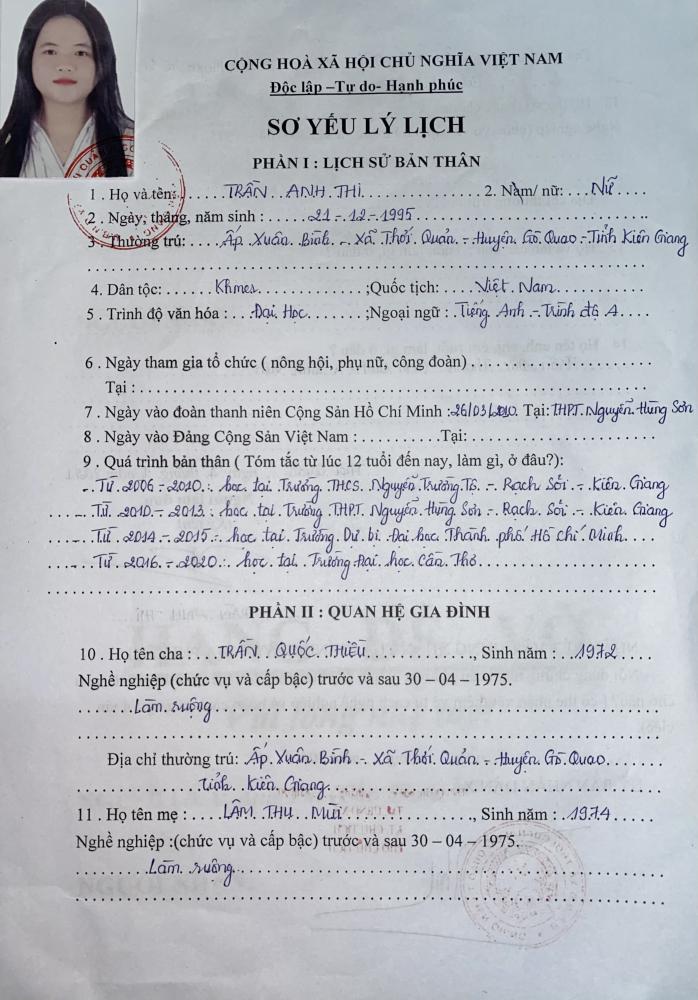 CỘNG HOÀ XÃ HỘI CHỦ NGHĨA VIỆT NAM
Độc lập –Tự do- Hạnh phúc
SƠ YẾU LÝ LỊCH
PHẦN I : LỊCH SỬ BẢN THÂN
1 . Họ và tên: TRẦN ANH THI 2. Nam/ nữ: Nữ
2 . Ngày, tháng, năm sinh : 21-12-1995
3 . Thường trú: Ấp Xuân Bình - Xã Thới Quản - Huyện Gò Quao - Tỉnh Kiên Giang
4. Dân tộc: Khmer ;Quốc tịch: Việt Nam
5 . Trình độ văn hóa : Đại Học ;Ngoại ngữ : Tiếng Anh - Trình độ A
6 . Ngày tham gia tổ chức ( nông hội, phụ nữ, công đoàn)
Tại :
7 . Ngày vào đoàn thanh niên Cộng Sản Hồ Chí Minh : 26/03/2010. Tại: THPT. Nguyễn Hùng Sơn
8 . Ngày vào Đảng Cộng Sản Việt Nam : Tại:
9 . Quá trình bản thân ( Tóm tắc từ lúc 12 tuổi đến nay, làm gì, ở đâu?):
- Từ 2006 - 2010 : học tại Trường THCS Nguyễn Trường Tộ - Rạch Sỏi - Kiên Giang
- Từ 2010 - 2013 : học tại Trường THPT Nguyễn Hùng Sơn - Rạch Sỏi - Kiên Giang
- Từ 2014 - 2015 : học tại Trường Dự bị Đại học Thành phố Hồ Chí Minh
- Từ 2016 - 2020 : học tại Trường Đại học Cần Thơ
PHẦN II : QUAN HỆ GIA ĐÌNH
10 . Họ tên cha : TRẦN QUỐC THIỀU , Sinh năm : 1972
Nghề nghiệp (chức vụ và cấp bậc) trước và sau 30 – 04 – 1975.
Làm ruộng
Địa chỉ thường trú: Ấp Xuân Bình - Xã Thới Quản - Huyện Gò Quao
Tỉnh Kiên Giang
11 . Họ tên mẹ : LÂM THU MÙI , Sinh năm : 1974
Nghề nghiệp :(chức vụ và cấp bậc) trước và sau 30 – 04 – 1975.
Làm ruộng